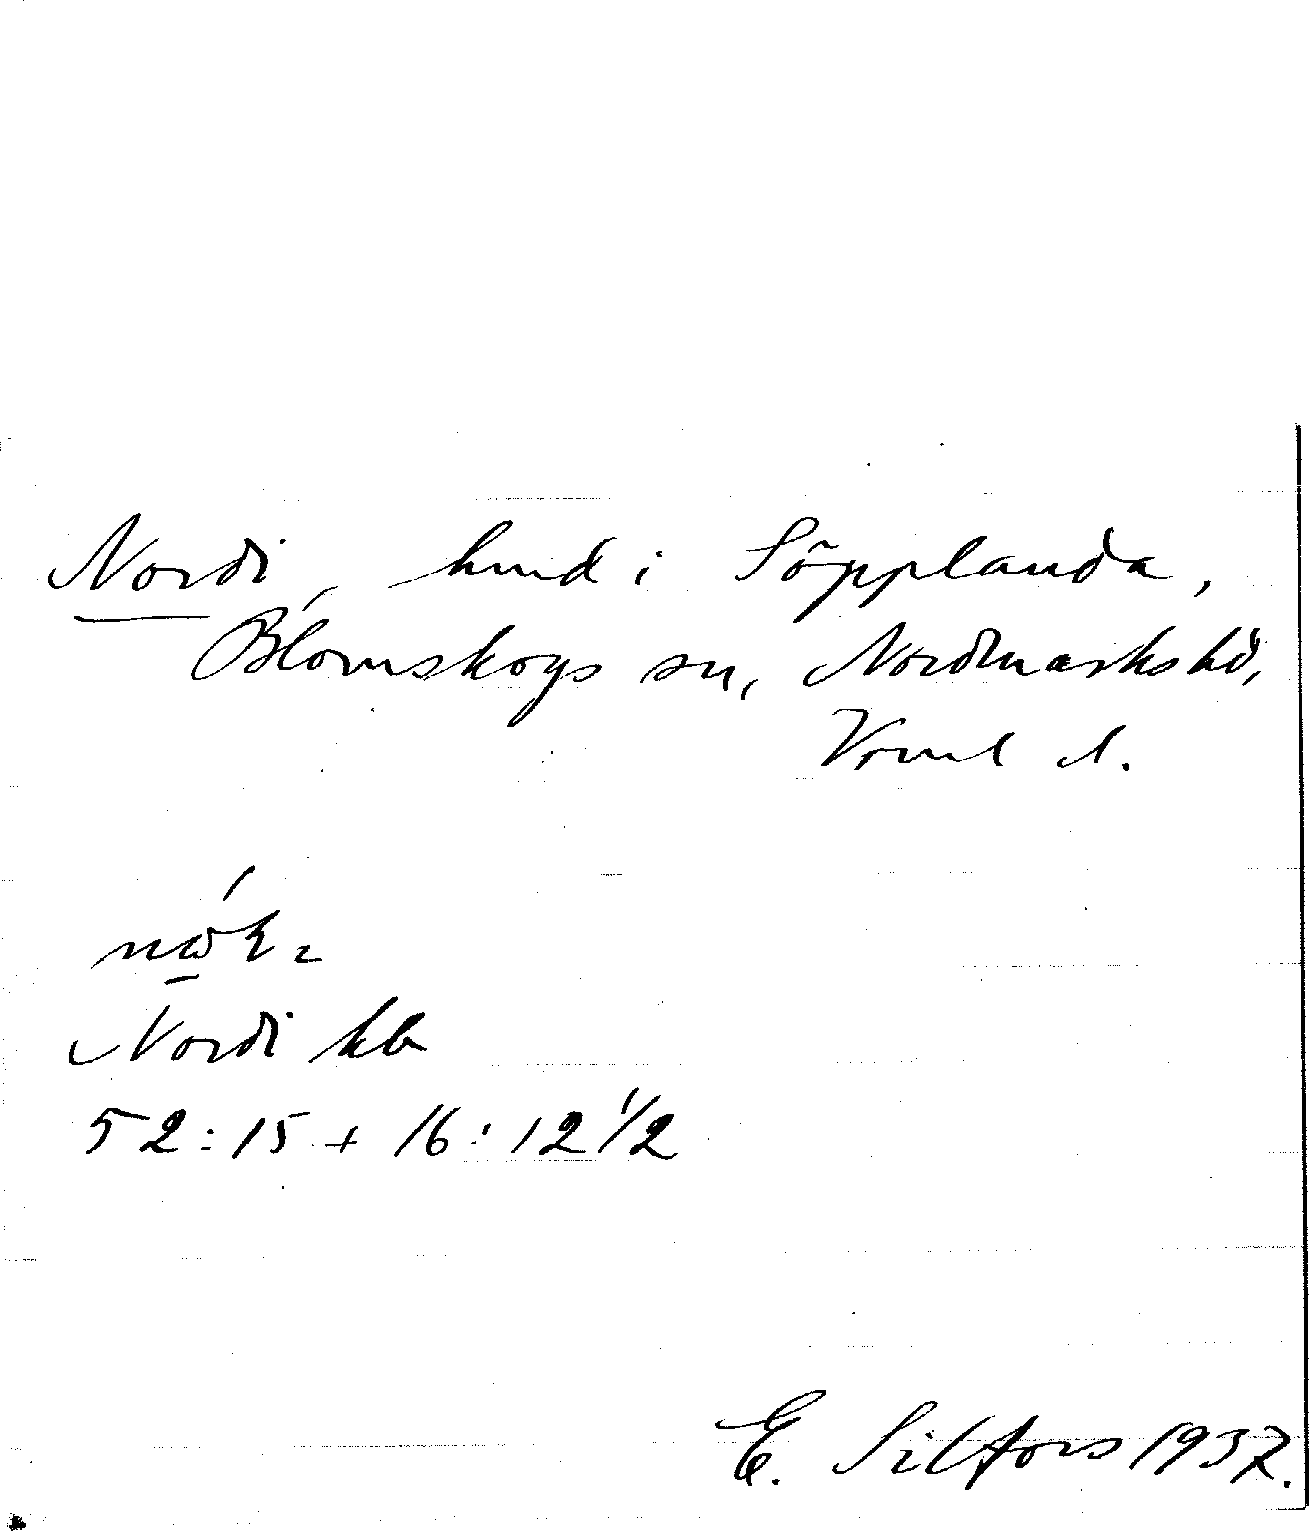 Nordi, hmd i Söpplanda,
Blomskogs sn, Nordmarks hd,
Vrml d.
Nordi hb
52:15 + 16:12 1/2
E. Silfors 1937.